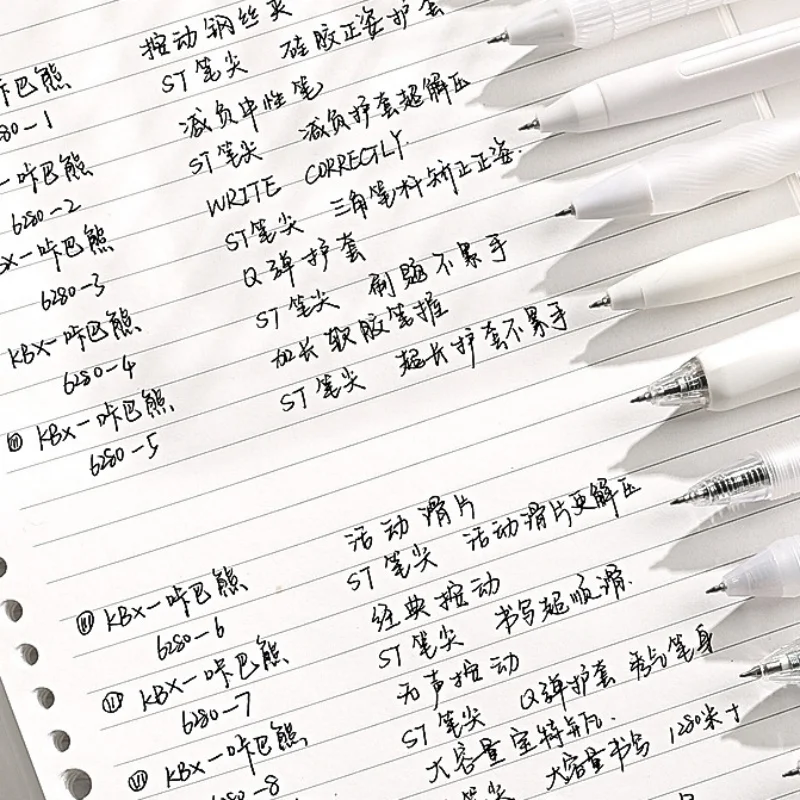 咔巴熊 按动钢丝夹
280-1 ST笔尖 硅胶正姿护套
-咔巴熊 减负中性笔
6280-2 ST笔尖 减负护套超解压
BX-咔巴熊 WRITE CORRECTLY.
6280-3 ST笔尖 三角笔杆矫正正姿.
KBX-咔巴熊 Q弹护套
6280-4 ST笔尖 刷题不累手
KBX-咔巴熊 加长软胶笔握
6280-5 ST笔尖 超长护套不累手
KBX-咔巴熊 活动滑片
6280-6 ST笔尖 活动滑片更解压
KBX-咔巴熊 经典按动
6280-7 ST笔尖 书写超顺滑.
KBX-咔巴熊 无声按动
6280-8 ST笔尖 Q弹护套 笔身
大容量宝特瓶.
笔尖 大容量书写 1280米+